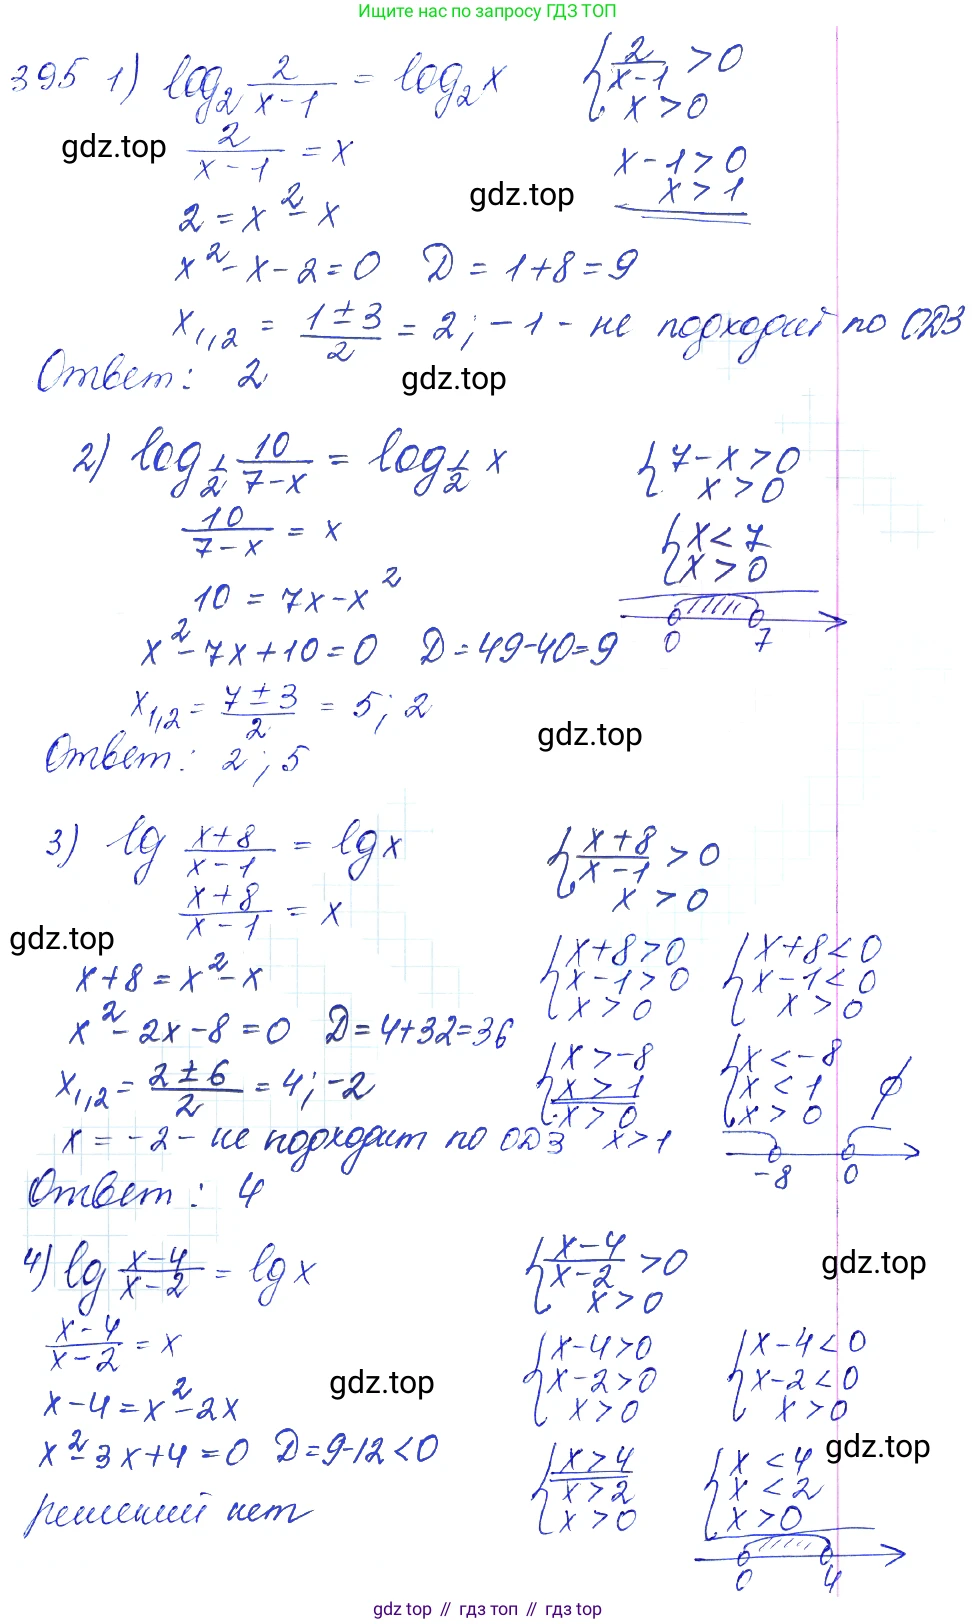 Ищите нас по запросу ГДЗ ТОП
395 1) log₂ 2/(x-1) = log₂ x   { 2/(x-1) > 0
x > 0
gdz.top   2/(x-1) = x   x-1 > 0
gdz.top   x > 1
2 = x² - x
x² - x - 2 = 0   D = 1+8 = 9
x₁,₂ = (1±3)/2 = 2; -1 - не подходит по ОДЗ
Ответ: 2   gdz.top
2) log_{1/2} 10/(7-x) = log_{1/2} x   { 7-x > 0
x > 0
10/(7-x) = x   { x < 7
x > 0
10 = 7x - x²
0   7
x² - 7x + 10 = 0   D = 49-40 = 9
x₁,₂ = (7±3)/2 = 5; 2
gdz.top
Ответ: 2; 5
3) lg (x+8)/(x-1) = lg x   { (x+8)/(x-1) > 0
x > 0
(x+8)/(x-1) = x
gdz.top
x+8 = x² - x   { x+8 > 0   { x+8 < 0
x-1 > 0   x-1 < 0
x > 0   x > 0
x² - 2x - 8 = 0   D = 4+32 = 36
x₁,₂ = (2±6)/2 = 4; -2   { x > -8   { x < -8
x > 1   x < 1   ∅
x > 0   x > 0
x = -2 - не подходит по ОДЗ   x > 1
-8   0
Ответ: 4
4) lg (x-4)/(x-2) = lg x   { (x-4)/(x-2) > 0   gdz.top
x > 0
(x-4)/(x-2) = x   { x-4 > 0   { x-4 < 0
gdz.top   x-2 > 0   x-2 < 0
x-4 = x² - 2x   x > 0   x > 0
x² - 3x + 4 = 0   D = 9-12 < 0   gdz.top
{ x > 4   { x < 4
x > 2   x < 2
решений нет   x > 0   x > 0
0   4
gdz.top // гдз топ // gdz top